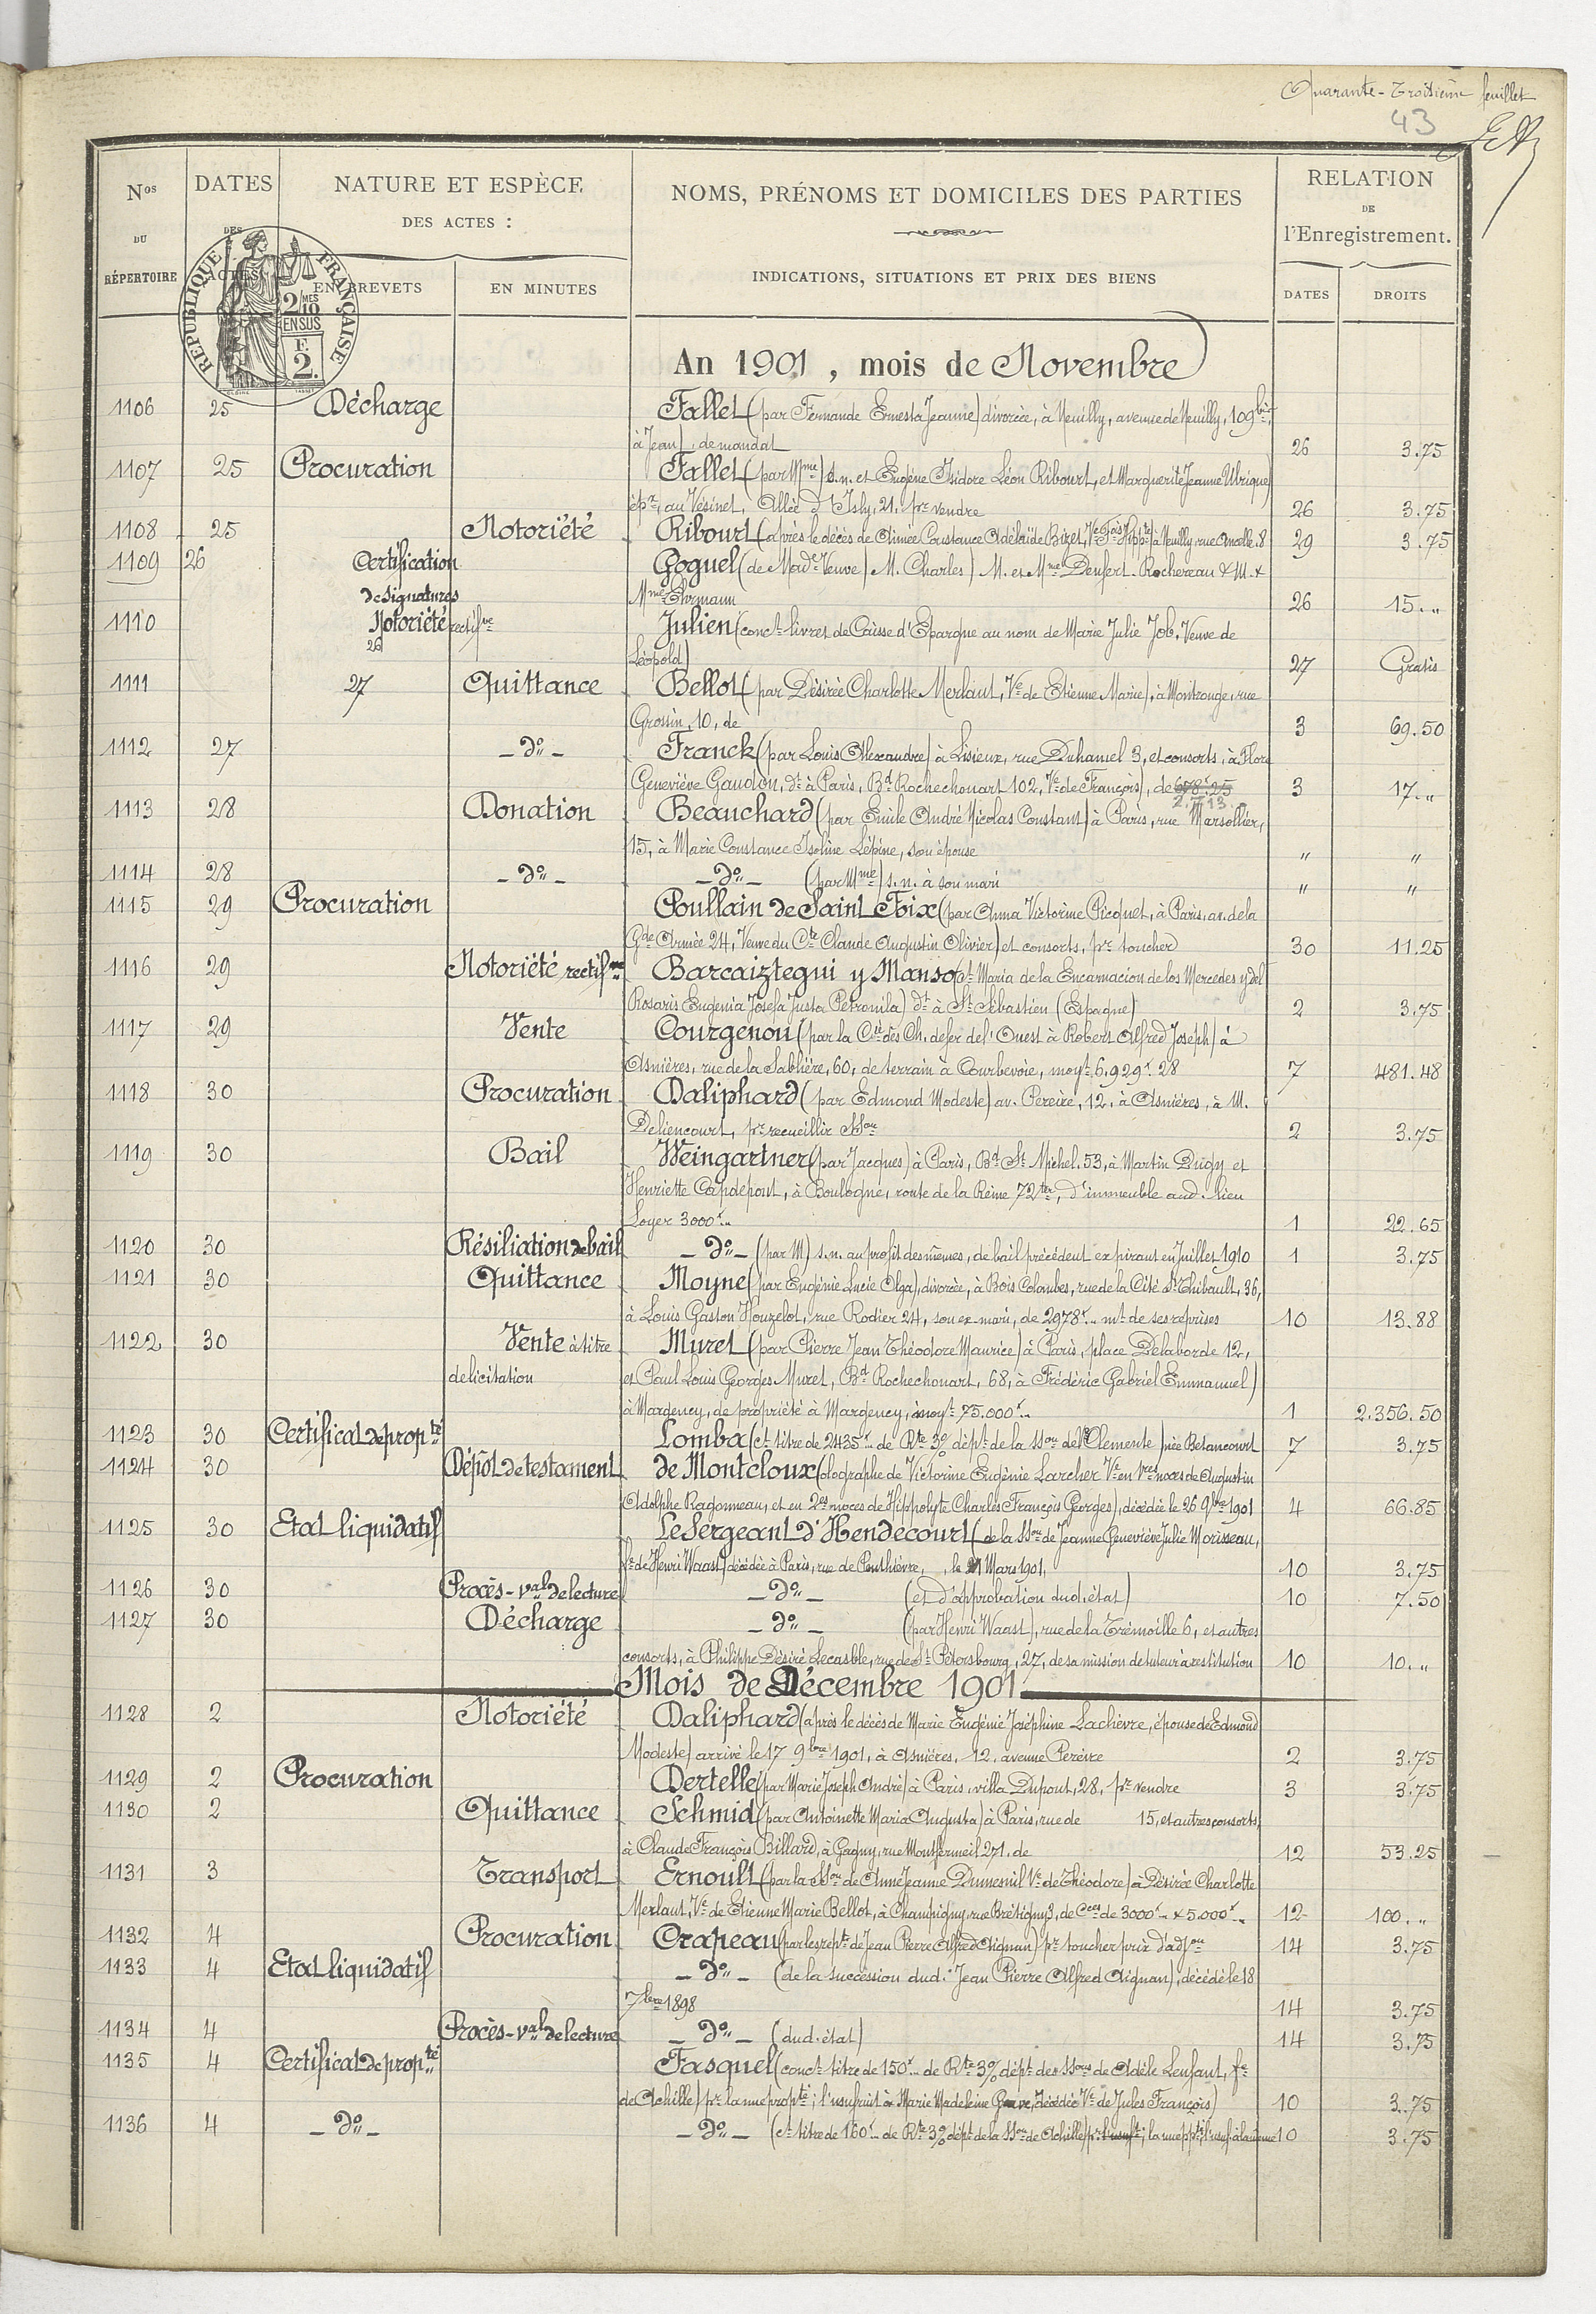 Quarante-Troisième feuillet
43
Nos DU RÉPERTOIRE
DATES DES ACTES
NATURE ET ESPÈCE
DES ACTES :
EN BREVETS
EN MINUTES
NOMS, PRÉNOMS ET DOMICILES DES PARTIES
INDICATIONS, SITUATIONS ET PRIX DES BIENS
RELATION
DE
l'Enregistrement.
DATES
DROITS
RÉPUBLIQUE FRANÇAISE
2/10 MES
EN SUS
F.
2.
An 1901, mois de Novembre
1106 25 Décharge Fallet (par Fernande Ernesta Jeanne) divorcée, à Neuilly, avenue de Neuilly, 109 bis,
à Jean), de mandat 26 3.75
1107 25 Procuration Fallet (par Mme) s.n. et Eugène Isidore Léon Ribourt, et Marguerite Jeanne Ubrique)
épx, au Vésinet, Allée d'Isly, 21, pr vendre 26 3.75
1108 25 Notoriété Ribourt (après le décès de Aimée Constance Adélaïde Bizet, Ve Fois Hippte à Neuilly, rue Ancelle 8 29 3.75
1109 26 Certification Goguel (de Made Veuve) M. Charles) M. et Mme Denfert-Rochereau & M. &
de signatures Mme Ehrmann 26 15.,,
1110 Notoriété rectifve Julien (conct livret de Caisse d'Epargne au nom de Marie Julie Job, Veuve de
26 Léopold) 27 Gratis
1111 27 Quittance Bellot (par Désirée Charlotte Merlaut, Ve de Etienne Marie), à Montrouge, rue
Grossin, 10, de 3 69.50
1112 27 - do - Franck (par Louis Alexandre) à Lisieux, rue Duhamel 3, et consorts, à Flore
Geneviève Gaudon, dt à Paris, Bd Rochechouart 102, Ve de François), de 678f.25 3 17.,,
2. 13.
1113 28 Donation Beauchard (par Emile André Nicolas Constant) à Paris, rue Marsollier,
15, à Marie Constance Isoline Lépine, son épouse " "
1114 28 - do - - do - (par Mme) s.n. à son mari " "
1115 29 Procuration Poullain de Saint Foix (par Anna Victorine Picquet, à Paris, av. de la
Gde Armée 24, Veuve du Cte Claude Augustin Olivier) et consorts, pr toucher 30 11.25
1116 29 Notoriété rectifve Barcaiztegui y Manso (ct Maria de la Encarnacion de los Mercedes y del
Rosaris Eugenia Josefa Justa Petronila) dt à St Sébastien (Espagne) 2 3.75
1117 29 Vente Courgenou (par la Cie des Ch. de fer de l'Ouest à Robert Alfred Joseph) à
Asnières, rue de la Sablière, 60, de terrain à Courbevoie, moyt 6.929f.28 7 481.48
1118 30 Procuration Daliphard (par Edmond Modeste) av. Pereire, 12, à Asnières, à M.
Deliencourt, pr recueillir Sson 2 3.75
1119 30 Bail Weingartner (par Jacques) à Paris, Bd St Michel 53, à Martin Dugy et
Henriette Capdepont, à Boulogne, route de la Reine 72 ter, d'immeuble aud. lieu
Loyer 3000f.,, 1 22.65
1120 30 Résiliation de bail - do - (par M) s.n. au profit des mêmes, de bail précédent expirant en Juillet 1910 1 3.75
1121 30 Quittance Moyne (par Eugénie Lucie Olga), divorcée, à Bois Colombes, rue de la Cité St Thibault, 36,
à Louis Gaston Houzelot, rue Rodier 24, son ex-mari, de 2978f.,, mt de ses reprises 10 13.88
1122 30 Vente à titre Muret (par Pierre Jean Théodore Maurice) à Paris, place Delaborde 12,
de licitation et Paul Louis Georges Muret, Bd Rochechouart, 68, à Frédéric Gabriel Emmanuel)
à Margency, de propriété à Margency, moyt 75.000f.,, 1 2.356.50
1123 30 Certificat de propté Lomba (ct titre de 2435f.,, de Rte 3% dépt de la sson de Clemente) née Betancourt 7 3.75
1124 30 Dépôt de testament de Montcloux (olographe de Victorine Eugénie Larcher Ve en 1res noces de Augustin
Adolphe Ragonneau, et en 2es noces de Hippolyte Charles François Georges), décédée le 26 9bre 1901 4 66.85
1125 30 Etat liquidatif Le Sergeant d'Hendecourt (de la sson de Jeanne Geneviève Julie Morisseau,
Ve de Henri Waast) décédée à Paris, rue de Penthièvre, , le 21 Mars 1901, 10 3.75
1126 30 Procès-val de lecture - do - (et d'approbation dud. état) 10 7.50
1127 30 Décharge - do - (par Henri Waast), rue de la Trémoille 6, et autres
consorts, à Philippe Désiré Lecasble, rue de St Pétersbourg, 27, de sa mission de tuteur à restitution 10 10.,,
Mois de Décembre 1901
1128 2 Notoriété Daliphard (après le décès de Marie Eugénie Joséphine Lachèvre, épouse de Edmond
Modeste) arrivé le 17 9bre 1901, à Asnières, 12, avenue Pereire 2 3.75
1129 2 Procuration Dertelle (par Marie Joseph André) à Paris, villa Dupont, 28, pr vendre 3 3.75
1130 2 Quittance Schmid (par Antoinette Maria Augusta) à Paris, rue de 15, et autres consorts,
à Claude François Billard, à Gagny, rue Montfermeil 271, de 12 53.25
1131 3 Transport Ernoult (par la Sson de Anne Jeanne Dumesnil Ve de Théodore) à Désirée Charlotte
Merlaut, Ve de Etienne Marie Bellot, à Champigny, rue Brétigny 3, de Ces de 3000f.,, & 5.000f.,, 12 100.,,
1132 4 Procuration Crapeau (par les repts de Jean Pierre Alfred Aignan) pr toucher prix d'adjon 14 3.75
1133 4 Etat liquidatif - do - (de la succession dud. Jean Pierre Alfred Aignan), décédé le 18
7bre 1898 14 3.75
1134 4 Procès-val de lecture - do - (dud. état) 14 3.75
1135 4 Certificat de propté Fasquel (conct titre de 150f.,, de Rte 3% dépt des ssons de Adèle Lenfant, fe
de Achille) pr la nue propté; l'usufruit à Marie Madeleine , décédée Ve de Jules François) 10 3.75
1136 4 - do - - do - (ct titre de 160f.,, de Rte 3% dépt de la sson de Achille) pr l'usuft; la nue ppté; l'usuf. à la même 10 3.75